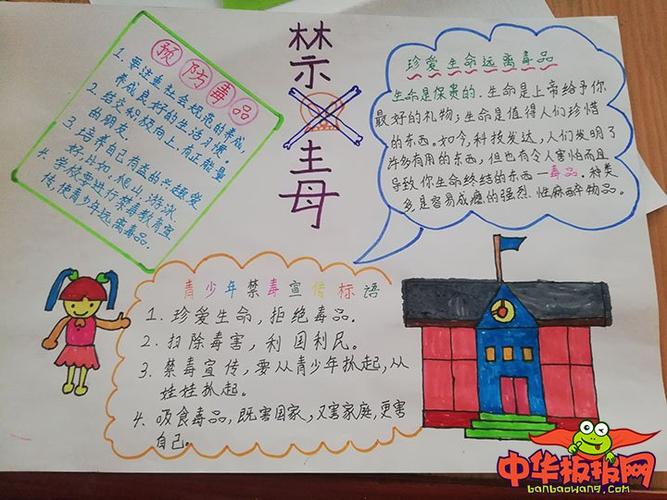 预防毒品
1. 要注意社会规范的养成,
养成良好的生活习惯。
2. 结交积极向上.有正能量
的朋友.
3. 培养自己有益的兴趣爱
好.比如.爬山.游泳
4. 学校要进行禁毒教育宣
传,使青少年远离毒品。
禁
毒
珍爱生命远离毒品
生命是保贵的.生命是上帝给予你
最好的礼物;生命是值得人们珍惜
的东西。如今,科技发达,人们发明了
许多有用的东西,但也有令人害怕而且
导致你生命终结的东西—毒品.种类
多是容易成瘾的强烈.性麻醉物品。
青少年禁毒宣传标语
1. 珍爱生命,拒绝毒品.
2. 扫除毒害,利国利民。
3. 禁毒宣传,要从青少年扒起,从
娃娃扒起。
4. 吸食毒品,既害国家,又害家庭,更害
自己。
中华板报网
banbaowang.com